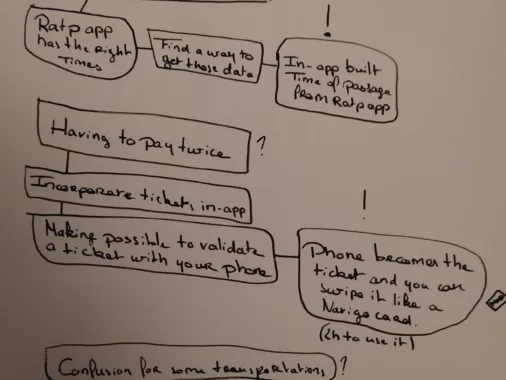 Ratp app
has the right
times
Find a way to
get those data
!
In-app built
Time of passage
from Ratp app
Having to pay twice
?
Incorporate tickets in-app
Making possible to validate
a ticket with your phone
!
Phone becomes the
ticket and you can
swipe it like a
Navigo card.
(2h to use it)
Confusion for some transportations
?